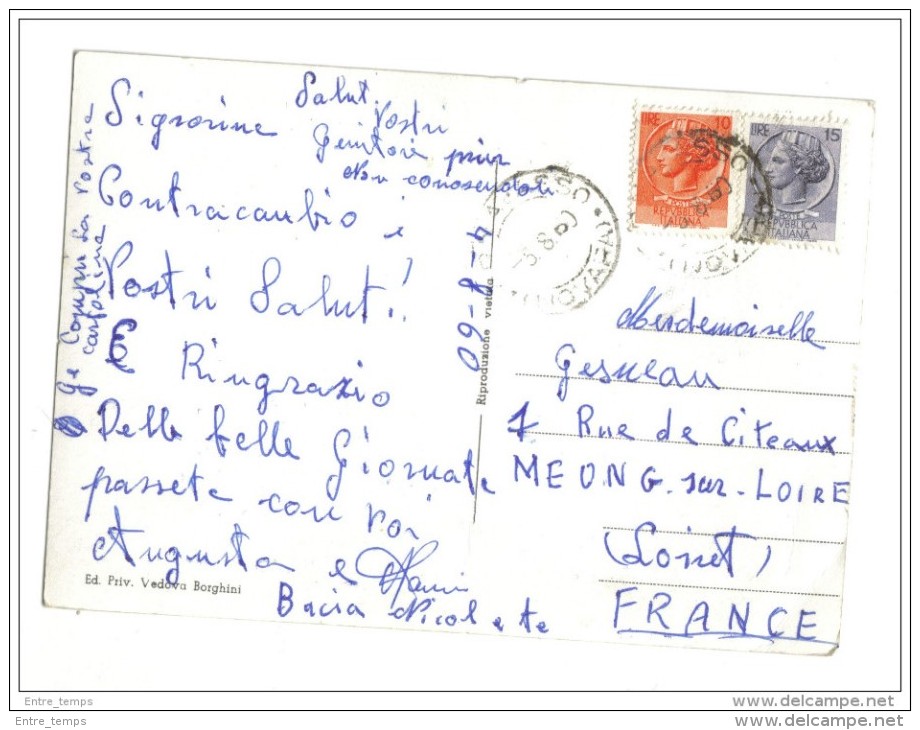 Signorine
Contracambio i
Vostri Saluti!
E Ringrazio
Delle belle Giornate
passate con voi
Augusta e
Bacia Nicolete
Salut.
Vostri
Genitori pur
Non conoscendoli
la vostra
cartolina
4-8-60
Ed. Priv. Vedova Borghini
Riproduzione vietata
LIRE 10
POSTE
REPVBBLICA
ITALIANA
LIRE 15
POSTE
REPVBBLICA
ITALIANA
Merdemoiselle
Gesneau
1 Rue de Citeaux
MEUNG-sur-LOIRE
(Loiret)
FRANCE
Entre_temps
www.delcampe.net
Entre_temps
www.delcampe.net